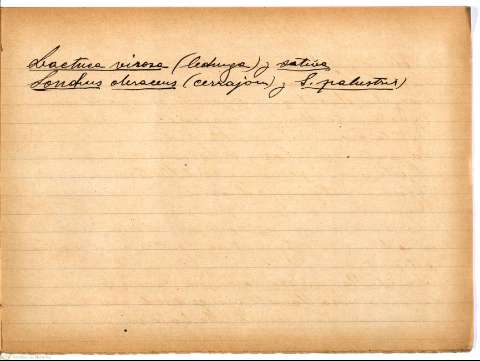 Lactuca virosa (lechuga) y sativa
Sonchus oleraceus (cerrajón) y S. palustris)